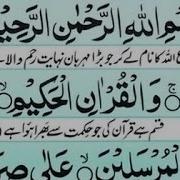 سْمِ اللهِ الرَّحْمٰنِ الرَّحِيْ
اللہ کا نام لے کر جو بڑا مہربان نہایت رحم والا
وَالْقُرْاٰنِ الْحَكِيْمِ
قسم ہے قرآن کی جو حکمت سے بھرا ہوا ہے
الْمُرْسَلِيْنَ عَلٰى صِرَ